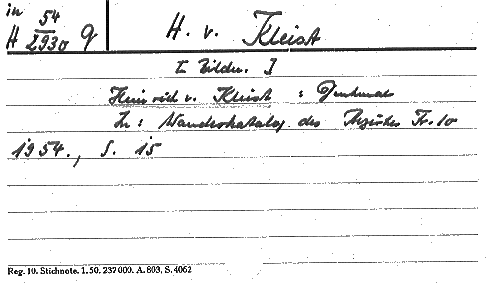 in
H 54/2930 q
H. v. Kleist
[ Bilder. ]
Heinrich v. Kleist : Denkmal
In: Wanderkatalog des Bezirkes Fr. 10
1954., S. 15
Reg. 10. Stichnote. 1. 50. 237000. A. 803, S. 4062